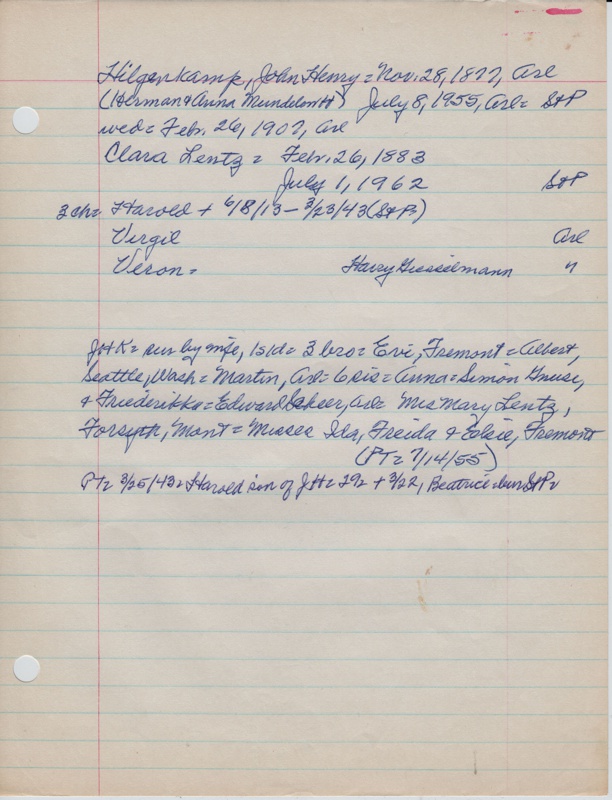 Hilgenkamp, John Henry = Nov. 28, 1877, Arl
(Herman & Anna Mundeloh) July 8, 1955, Arl = St P
wed = Feb. 26, 1907, Arl
Clara Lentz = Feb. 26, 1883
July 1, 1962 St P
3 ch = Harold + 6/8/13 - 3/23/43 (St P)
Virgil Arl
Veron = Harry Giesselmann "
JHK = sur by wife, 1s 1d = 3 bro = Evi, Fremont = Albert,
Seattle, Wash = Martin, Arl = 6 sis = Anna = Simon Gnuse,
& Friederikka = Edward, Arl = Mrs Mary Lentz,
Forsyth, Mont = Misses Ida, Freida & Elsie, Fremont
(PT = 7/14/55)
PT = 3/25/43 = Harold son of JH = 29 + 3/22, Beatrice = bur St P =